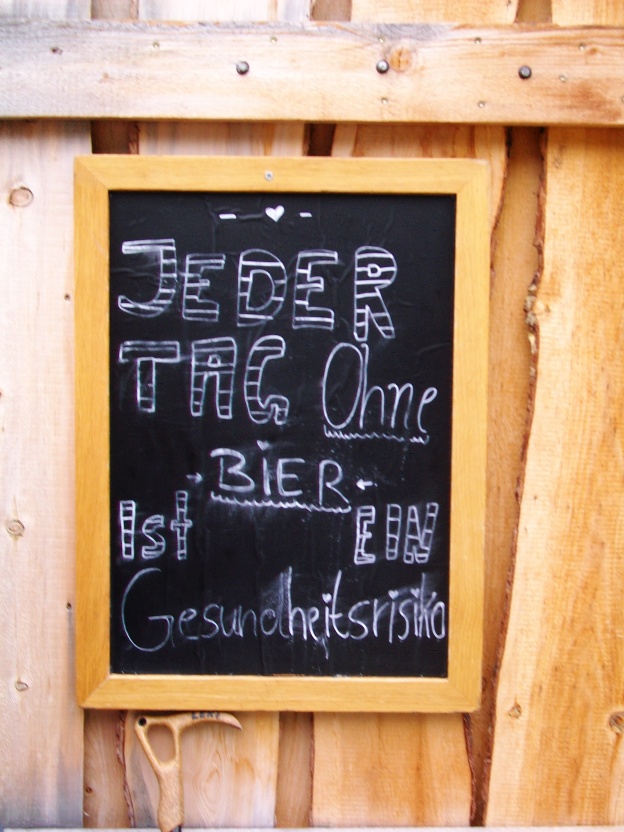 JEDER
TAG Ohne
BiER
Ist EIN
Gesundheitsrisiko